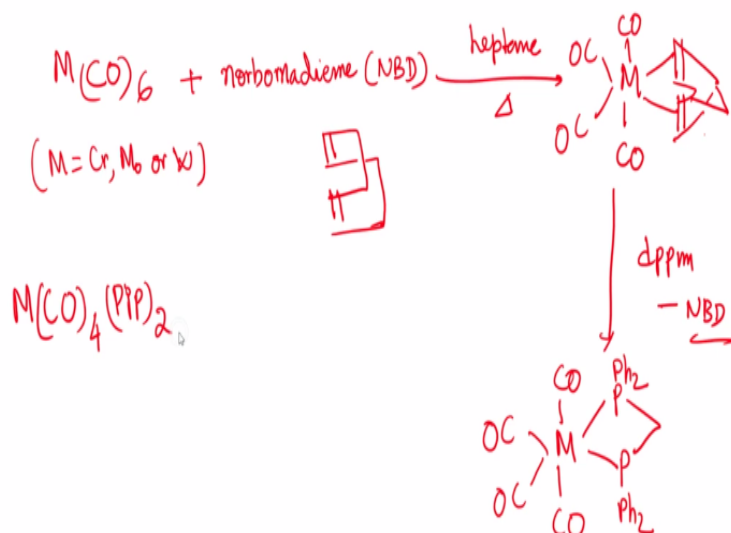 M(CO)6 + norbornadiene (NBD) heptane Δ
(M = Cr, Mo or W)
CO
OC
M
OC
CO
dppm
- NBD
M(CO)4(PiP)2
CO
Ph2
P
OC
M
OC
P
CO
Ph2